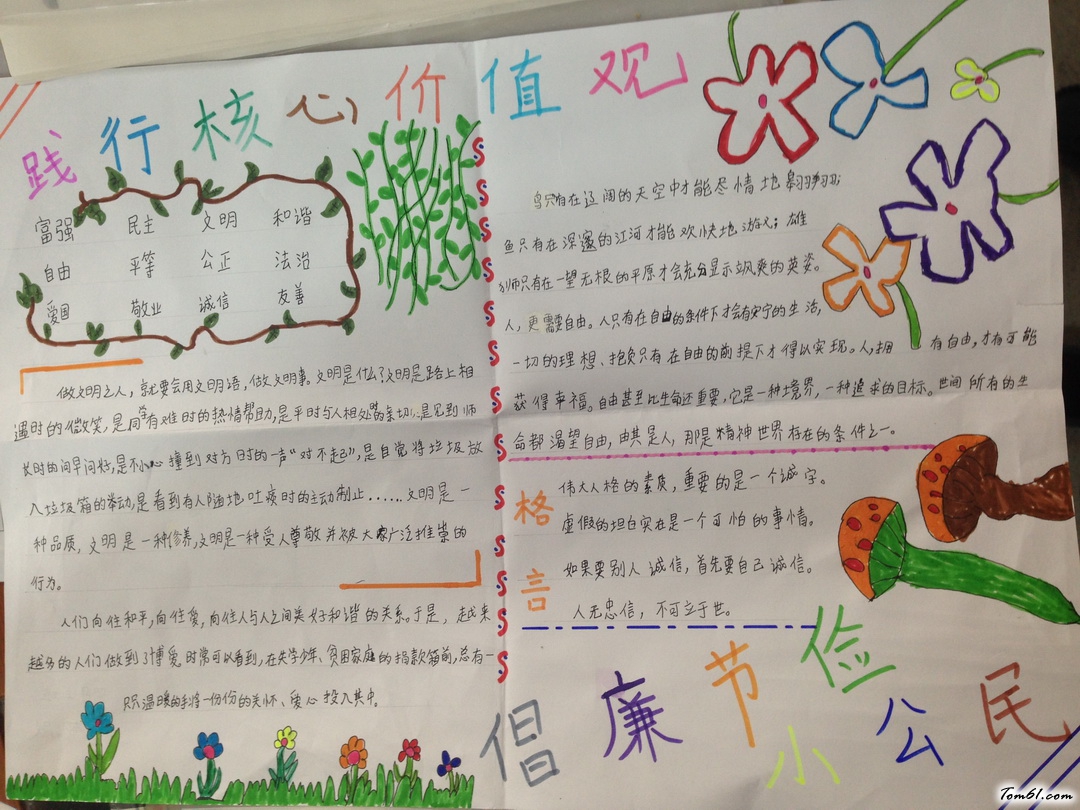 践行核心价值观
富强 民主 文明 和谐
自由 平等 公正 法治
爱国 敬业 诚信 友善
做文明之人，就要会用文明语，做文明事。文明是什么？文明是路上相
遇时的微笑，是同学有难时的热情帮助，是平时与人相处的亲切，是见到师
长时的问早问好，是不小心撞到对方时的一声“对不起”，是自觉将垃圾放
入垃圾箱的举动，是看到有人随地吐痰时的主动制止……文明是一
种品质，文明是一种修养，文明是一种受人尊敬并被大家广泛推崇的
行为。
人们向住和平，向住爱，向住人与人之间美好和谐的关系。于是，越来
越多的人们做到了博爱。时常可以看到，在失学少年、贫困家庭的捐款箱前，总有一
只只温暖的手将一份份的关怀、爱心投入其中。
鸟只有在辽阔的天空中才能尽情地翱翔；
鱼只有在深邃的江河才能欢快地游弋；雄
狮只有在一望无根的平原才会充分显示飒爽的英姿。
人，更需要自由。人只有在自由的条件下才会有安宁的生活，
一切的理想、抱负只有在自由的前提下才得以实现。人，拥有自由，才有可能
获得幸福。自由甚至比生命还重要，它是一种境界，一种追求的目标。世间所有的生
命都渴望自由，由其是人，那是精神世界存在的条件之一。
格言
伟大人格的素质，重要的是一个诚字。
虚假的坦白实在是一个可怕的事情。
如果要别人诚信，首先要自己诚信。
人无忠信，不可立于世。
倡廉节俭
小公民
Tom61.com